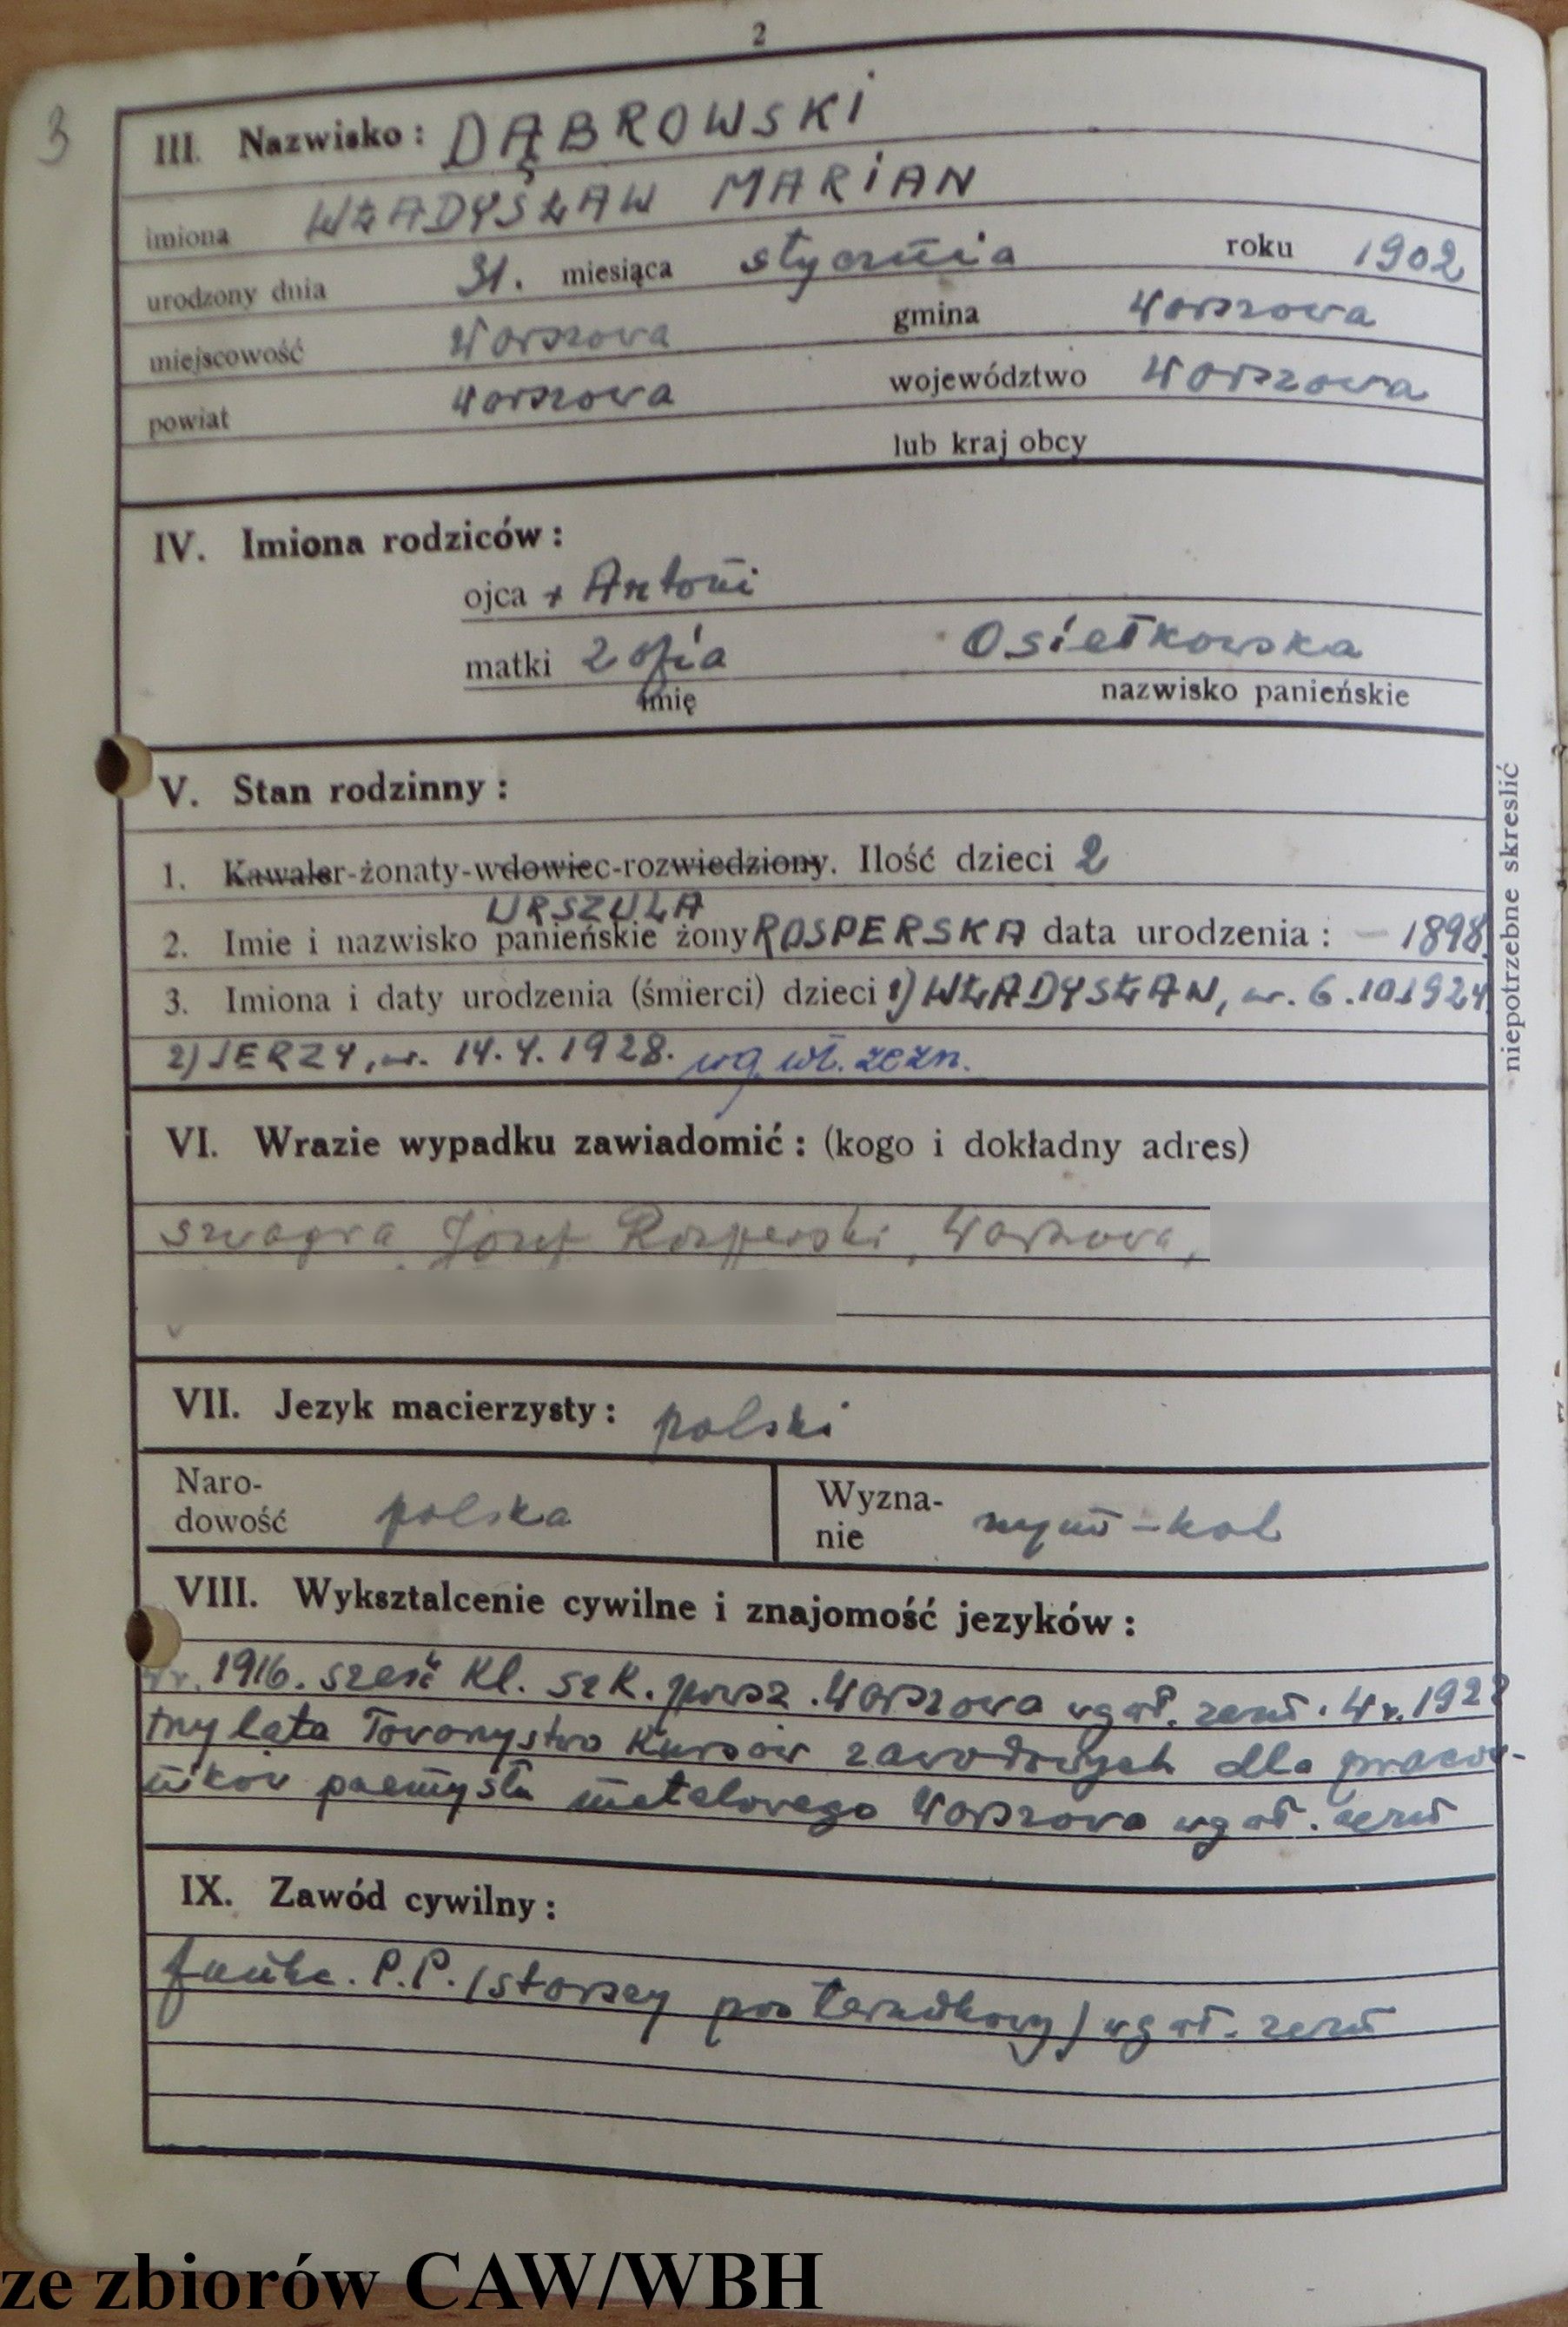 2
3
III. Nazwisko: DĄBROWSKI
imiona WŁADYSŁAW MARIAN
urodzony dnia 31. miesiąca stycznia roku 1902
miejscowość Warszawa gmina Warszawa
powiat Warszawa województwo Warszawa
lub kraj obcy
IV. Imiona rodziców:
ojca + Antoni
matki Zofia Osiełkowska
imię nazwisko panieńskie
V. Stan rodzinny:
1. Kawaler-żonaty-wdowiec-rozwiedziony. Ilość dzieci 2
URSZULA
2. Imie i nazwisko panieńskie żony ROSPERSKA data urodzenia: - 1898
3. Imiona i daty urodzenia (śmierci) dzieci 1) WŁADYSŁAW, ur. 6.10.1924
2) JERZY, ur. 14.4.1928. wg. wł. zezn.
niepotrzebne skreslić
VI. Wrazie wypadku zawiadomić: (kogo i dokładny adres)
szwagra Józef Rosperski, Warszawa,
VII. Jezyk macierzysty: polski
Naro-
dowość polska
Wyzna-
nie rzym-kat
VIII. Wyksztalcenie cywilne i znajomość jezyków:
W r. 1916. sześć kl. szk. powsz. Warszawa wg wł. zezn. W r. 1922
trzy lata Towarzystwo Kursów zawodowych dla pracow-
ników przemysłu metalowego Warszawa wg wł. zezn
IX. Zawód cywilny:
funkc. P.P. (starszy posterunkowy) wg wł. zezn
ze zbiorów CAW/WBH